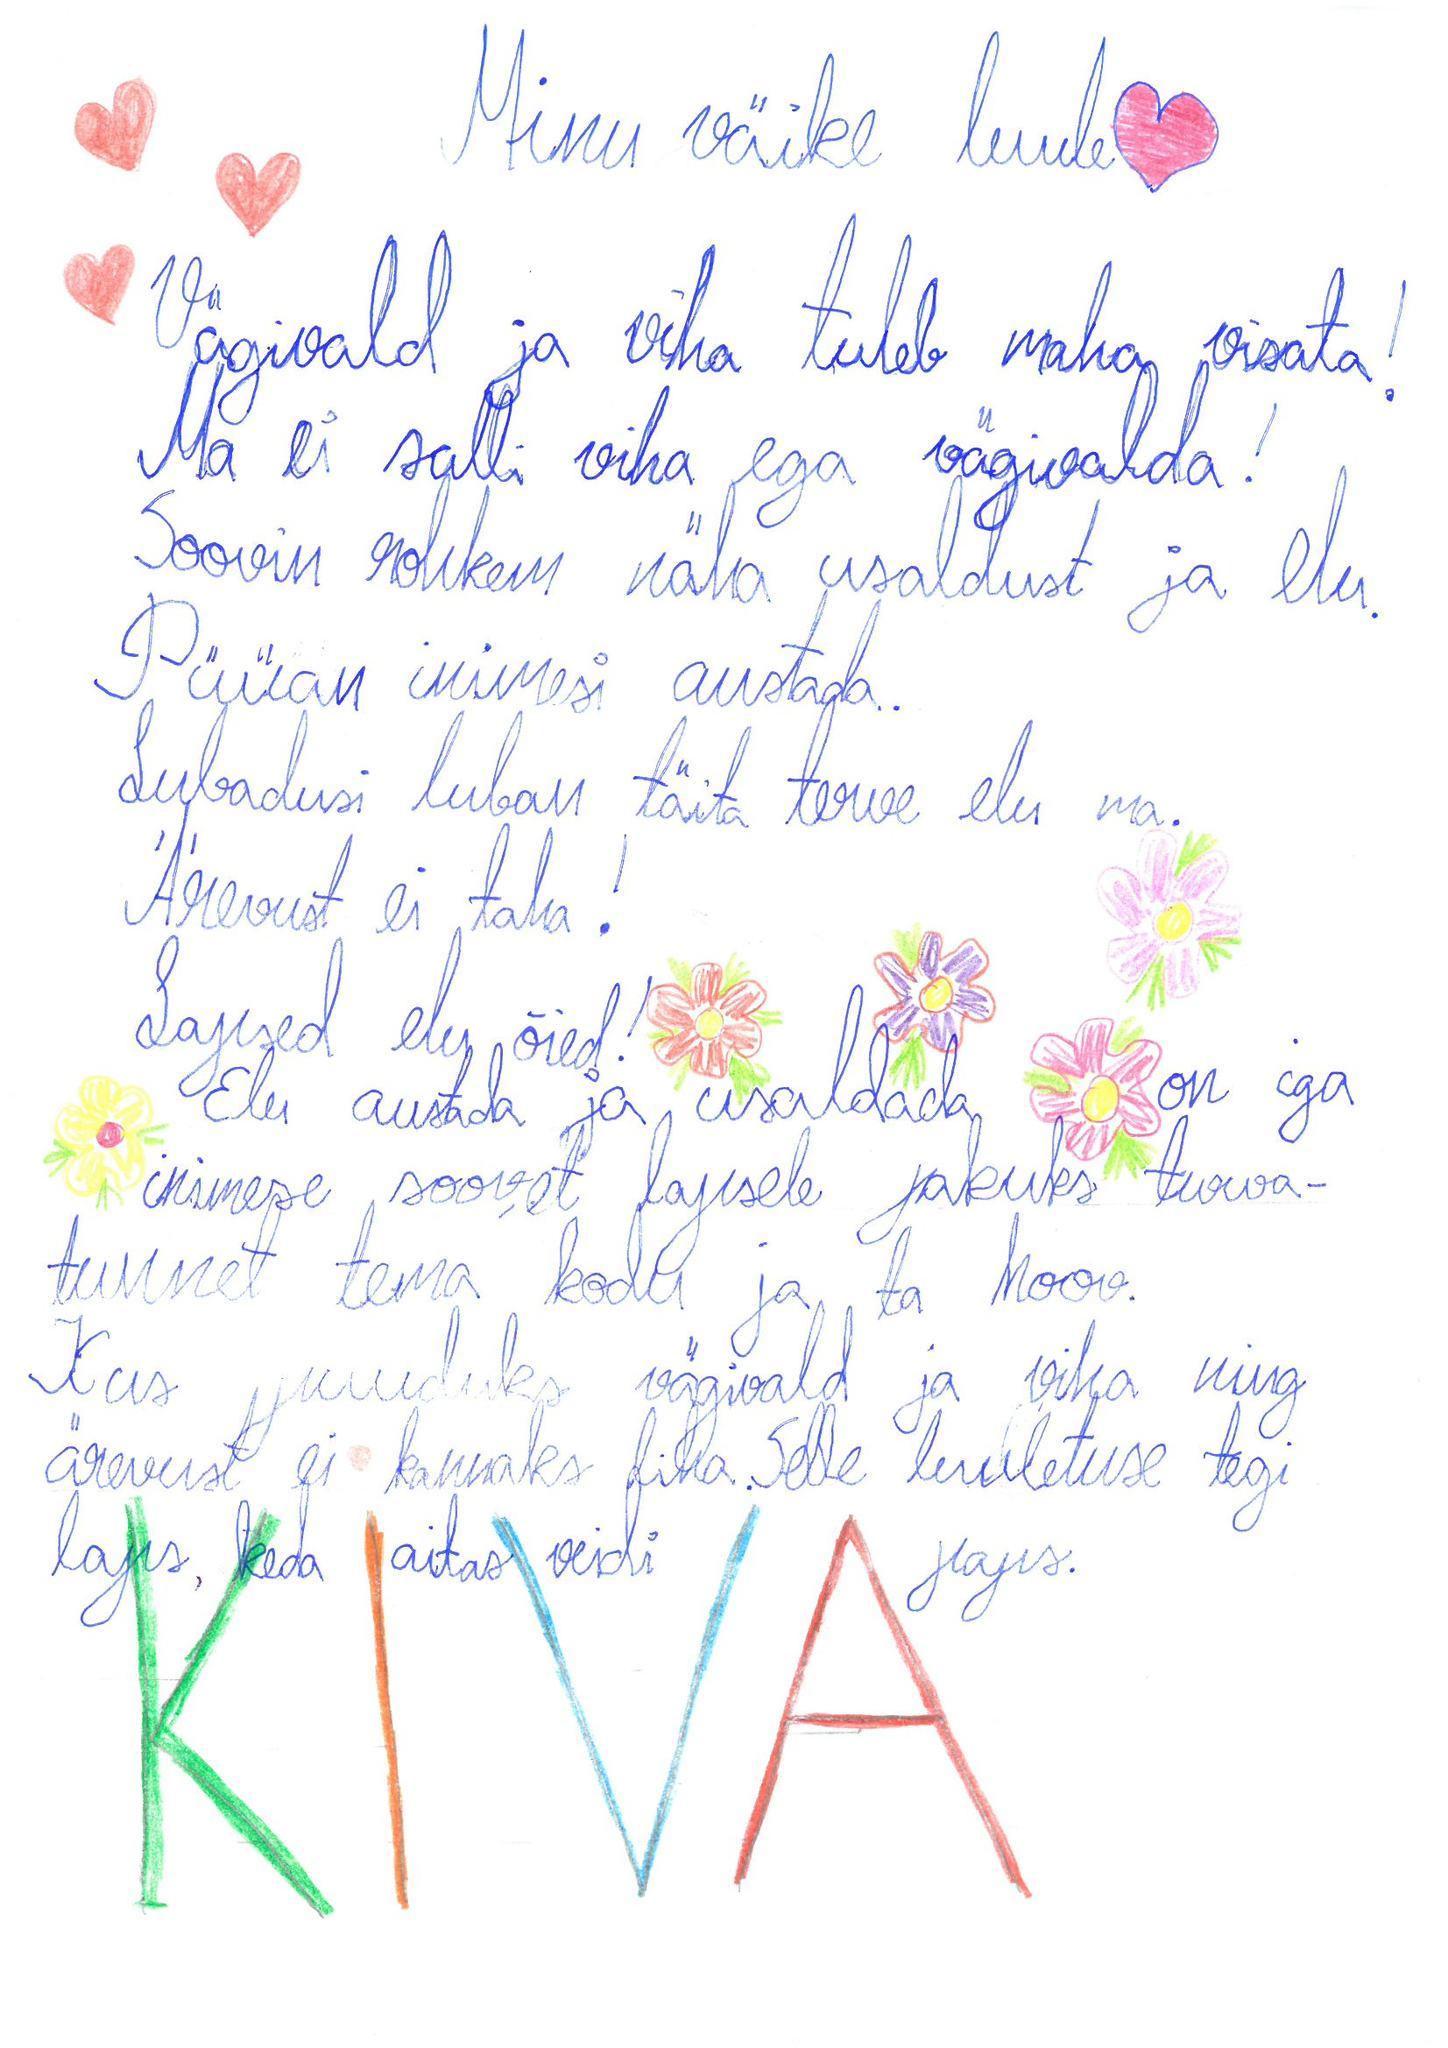 Minu väike luule
Vägivald ja viha tuleb maha visata!
Ma ei salli viha ega vägivalda!
Soovin rohkem näha usaldust ja elu.
Püüan inimesi austada..
Lubadusi luban täita terve elu ma.
Ärevust ei taha!
Lapsed elu õied!
Elu austada ja usaldada on iga
inimese soov, et lapsele pakuks turva-
tunnet tema kodu ja ta hoov.
Kus puuduks vägivald ja viha ning
ärevust ei kannaks liha. Selle luuletuse tegi
laps, keda aitas veidi
KIVA